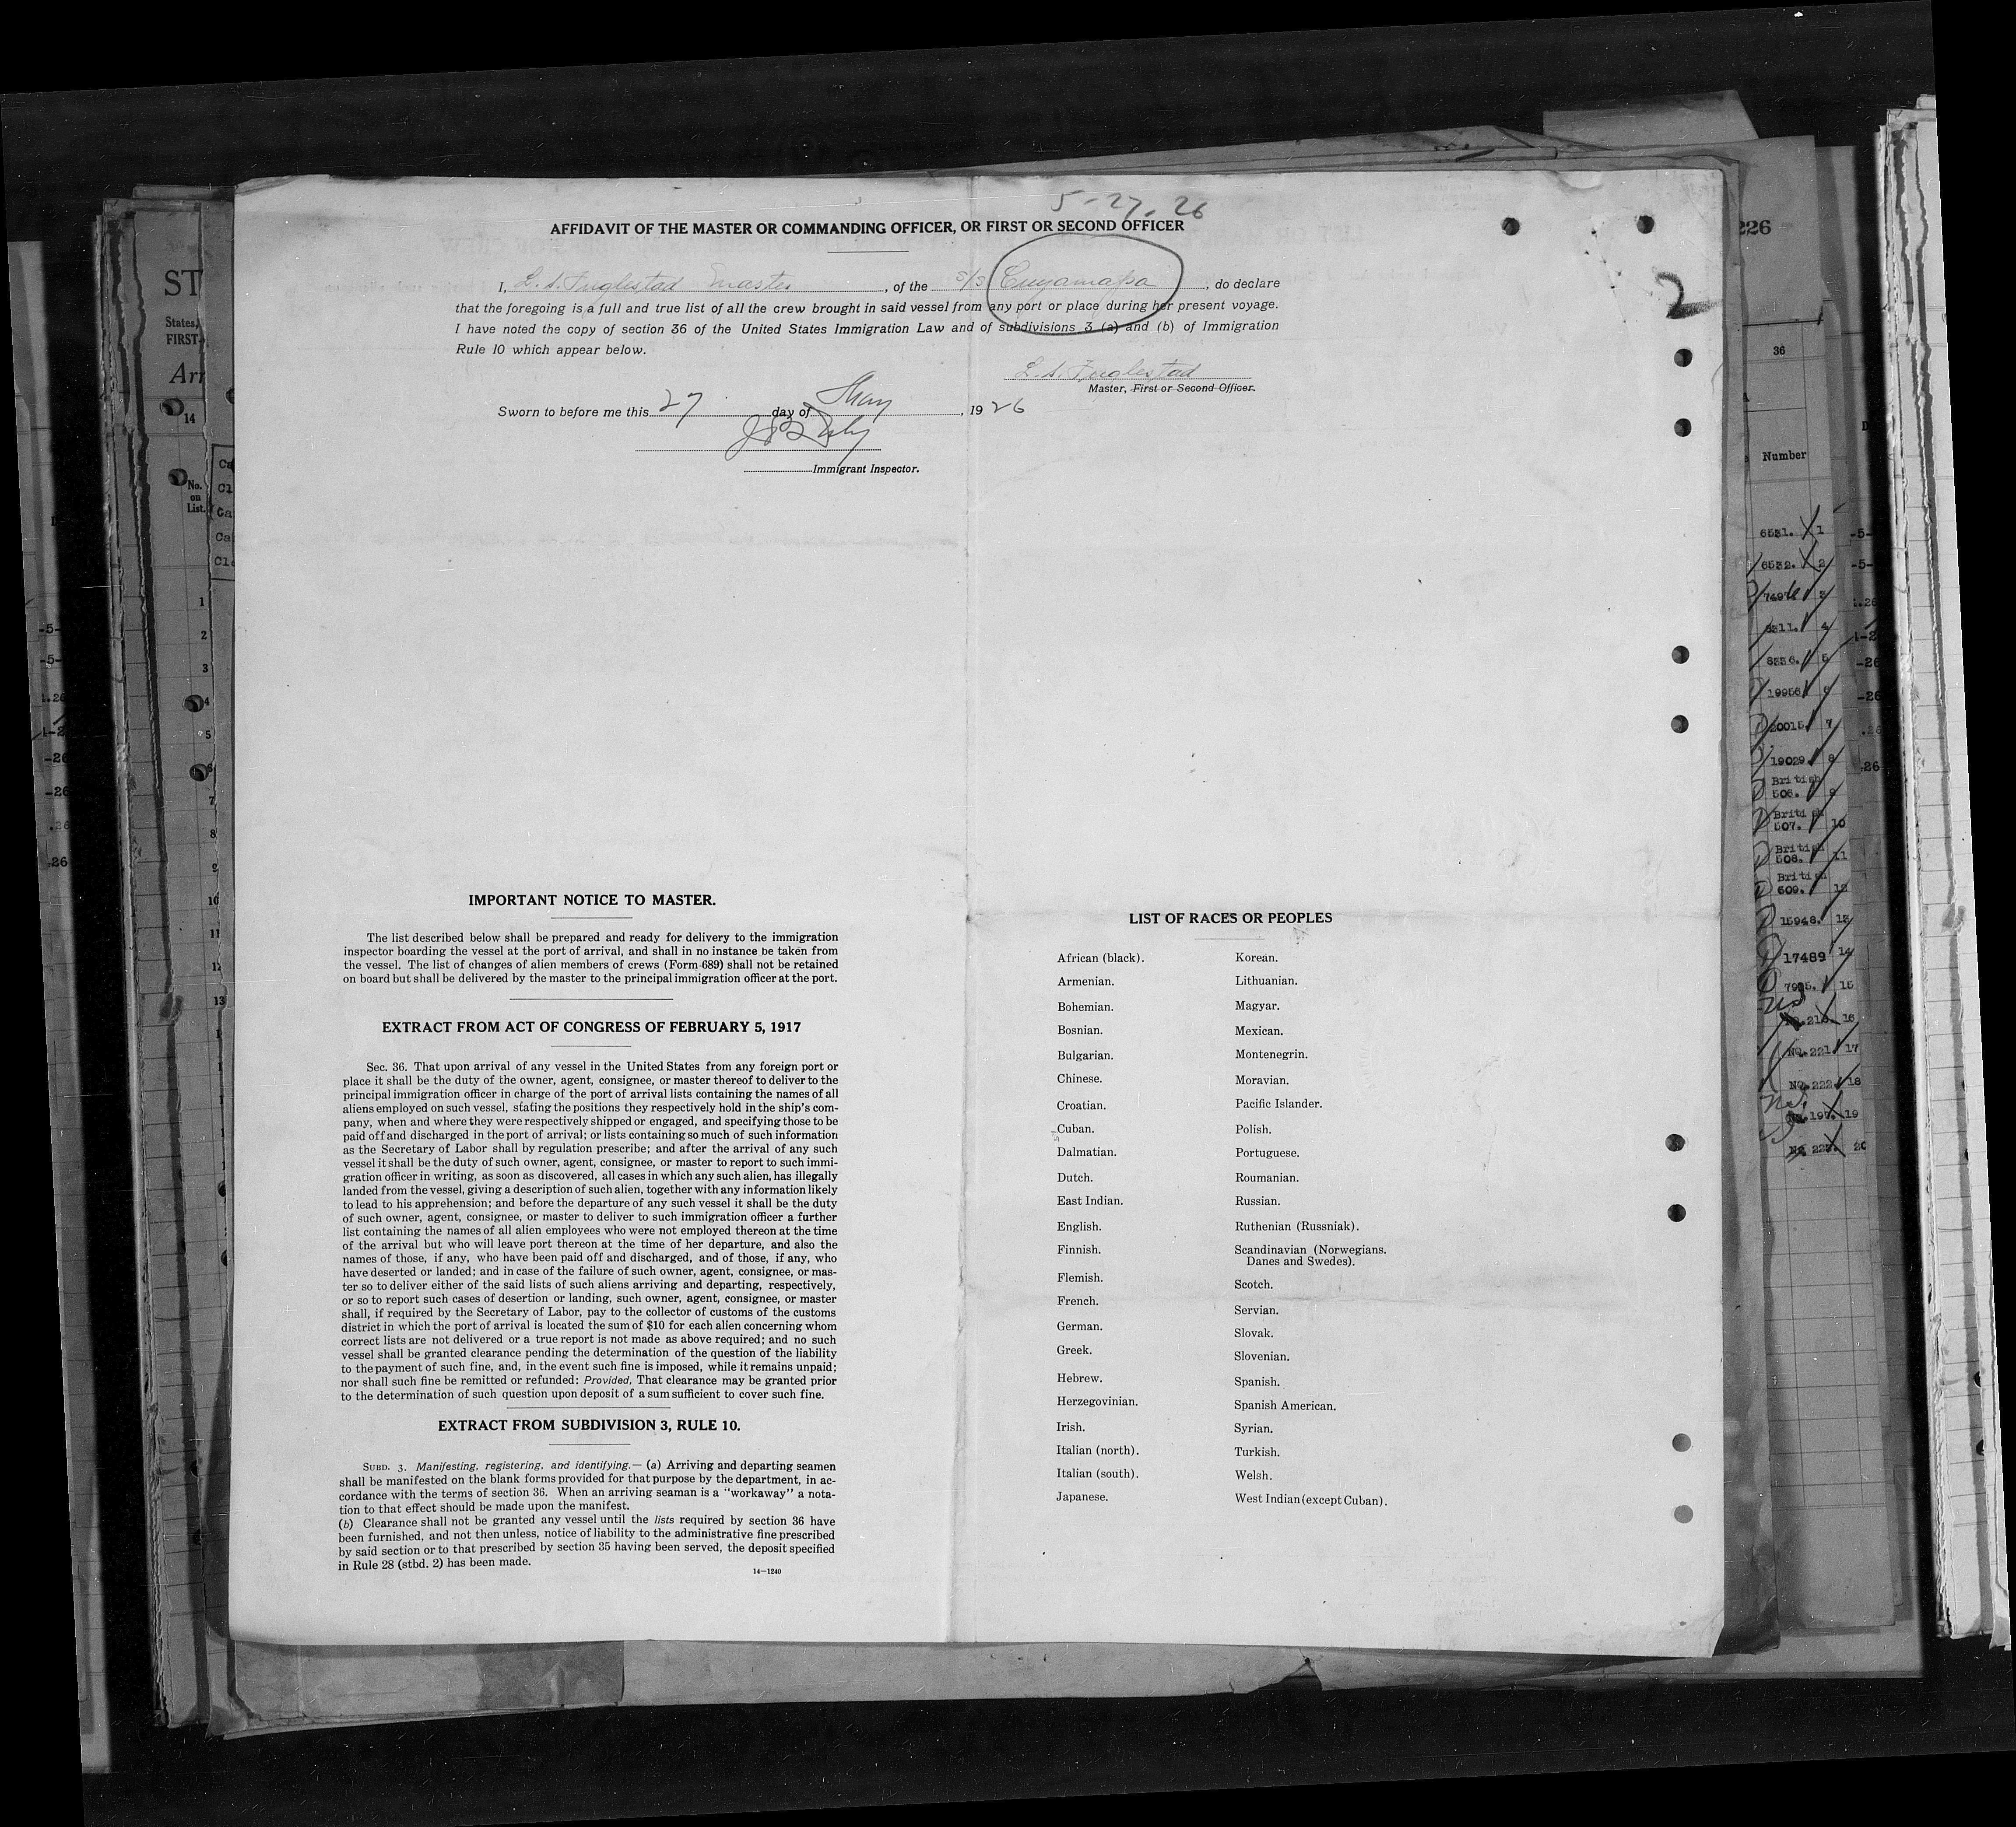 5-27-26
AFFIDAVIT OF THE MASTER OR COMMANDING OFFICER, OR FIRST OR SECOND OFFICER
2
I, L. A. Fuglestad Master, of the S/S Cuyamapa, do declare
that the foregoing is a full and true list of all the crew brought in said vessel from any port or place during her present voyage.
I have noted the copy of section 36 of the United States Immigration Law and of subdivisions 3 (a) and (b) of Immigration
Rule 10 which appear below.
L. A. Fuglestad
Master, First or Second Officer.
Sworn to before me this 27 day of May, 1926
Immigrant Inspector.
IMPORTANT NOTICE TO MASTER.
The list described below shall be prepared and ready for delivery to the immigration
inspector boarding the vessel at the port of arrival, and shall in no instance be taken from
the vessel. The list of changes of alien members of crews (Form 689) shall not be retained
on board but shall be delivered by the master to the principal immigration officer at the port.
EXTRACT FROM ACT OF CONGRESS OF FEBRUARY 5, 1917
Sec. 36. That upon arrival of any vessel in the United States from any foreign port or
place it shall be the duty of the owner, agent, consignee, or master thereof to deliver to the
principal immigration officer in charge of the port of arrival lists containing the names of all
aliens employed on such vessel, stating the positions they respectively hold in the ship's com-
pany, when and where they were respectively shipped or engaged, and specifying those to be
paid off and discharged in the port of arrival; or lists containing so much of such information
as the Secretary of Labor shall by regulation prescribe; and after the arrival of any such
vessel it shall be the duty of such owner, agent, consignee, or master to report to such immi-
gration officer in writing, as soon as discovered, all cases in which any such alien, has illegally
landed from the vessel, giving a description of such alien, together with any information likely
to lead to his apprehension; and before the departure of any such vessel it shall be the duty
of such owner, agent, consignee, or master to deliver to such immigration officer a further
list containing the names of all alien employees who were not employed thereon at the time
of the arrival but who will leave port thereon at the time of her departure, and also the
names of those, if any, who have been paid off and discharged, and of those, if any, who
have deserted or landed; and in case of the failure of such owner, agent, consignee, or mas-
ter so to deliver either of the said lists of such aliens arriving and departing, respectively,
or so to report such cases of desertion or landing, such owner, agent, consignee, or master
shall, if required by the Secretary of Labor, pay to the collector of customs of the customs
district in which the port of arrival is located the sum of $10 for each alien concerning whom
correct lists are not delivered or a true report is not made as above required; and no such
vessel shall be granted clearance pending the determination of the question of the liability
to the payment of such fine, and, in the event such fine is imposed, while it remains unpaid;
nor shall such fine be remitted or refunded: Provided, That clearance may be granted prior
to the determination of such question upon deposit of a sum sufficient to cover such fine.
EXTRACT FROM SUBDIVISION 3, RULE 10.
SUBD. 3. Manifesting, registering, and identifying.— (a) Arriving and departing seamen
shall be manifested on the blank forms provided for that purpose by the department, in ac-
cordance with the terms of section 36. When an arriving seaman is a "workaway" a nota-
tion to that effect should be made upon the manifest.
(b) Clearance shall not be granted any vessel until the lists required by section 36 have
been furnished, and not then unless, notice of liability to the administrative fine prescribed
by said section or to that prescribed by section 35 having been served, the deposit specified
in Rule 28 (stbd. 2) has been made.
14—1240
LIST OF RACES OR PEOPLES
African (black).
Armenian.
Bohemian.
Bosnian.
Bulgarian.
Chinese.
Croatian.
Cuban.
Dalmatian.
Dutch.
East Indian.
English.
Finnish.
Flemish.
French.
German.
Greek.
Hebrew.
Herzegovinian.
Irish.
Italian (north).
Italian (south).
Japanese.
Korean.
Lithuanian.
Magyar.
Mexican.
Montenegrin.
Moravian.
Pacific Islander.
Polish.
Portuguese.
Roumanian.
Russian.
Ruthenian (Russniak).
Scandinavian (Norwegians.
Danes and Swedes).
Scotch.
Servian.
Slovak.
Slovenian.
Spanish.
Spanish American.
Syrian.
Turkish.
Welsh.
West Indian (except Cuban).
36
Number
17489